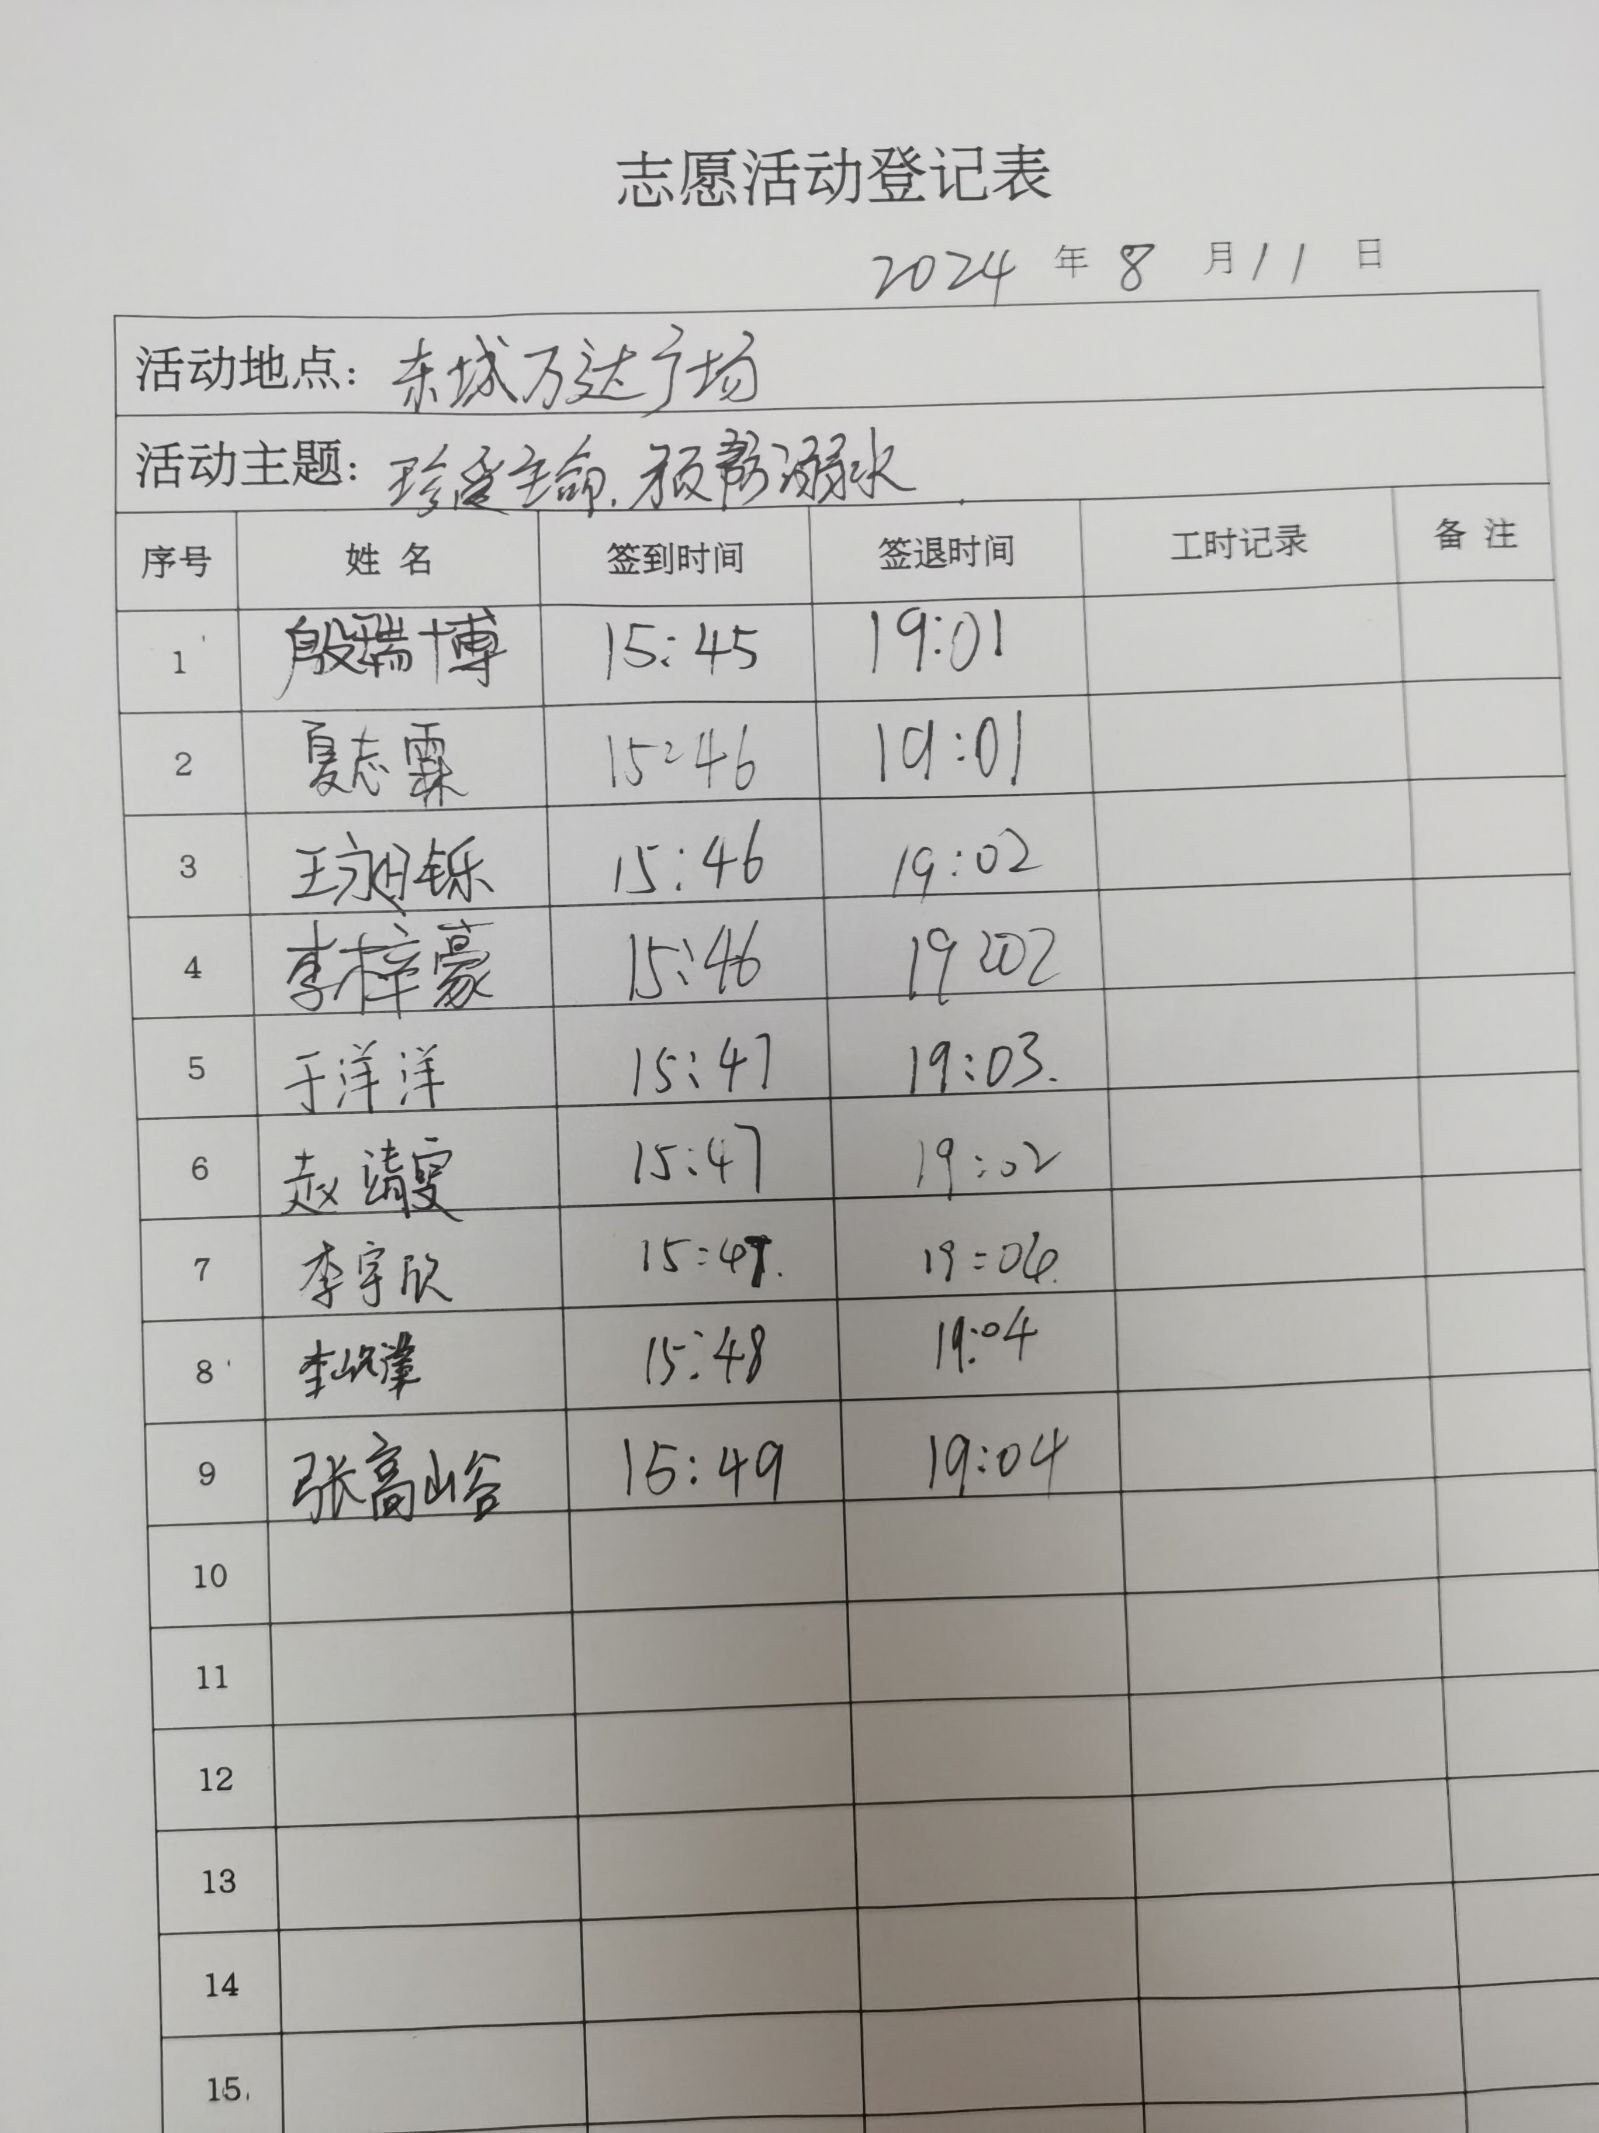 志愿活动登记表
2024 年 8 月 11 日
活动地点: 东城万达广场
活动主题: 珍爱生命.预防溺水
序号 姓 名 签到时间 签退时间 工时记录 备 注
1 殷瑞博 15:45 19:01
2 夏志霖 15:46 19:01
3 王 铄 15:46 19:02
4 李梓豪 15:46 19:02
5 于洋洋 15:47 19:03.
6 赵靖雯 15:47 19:02
7 李宇欣 15:47. 19:04.
8 李 15:48 19:04
9 张高山谷 15:49 19:04
10
11
12
13
14
15